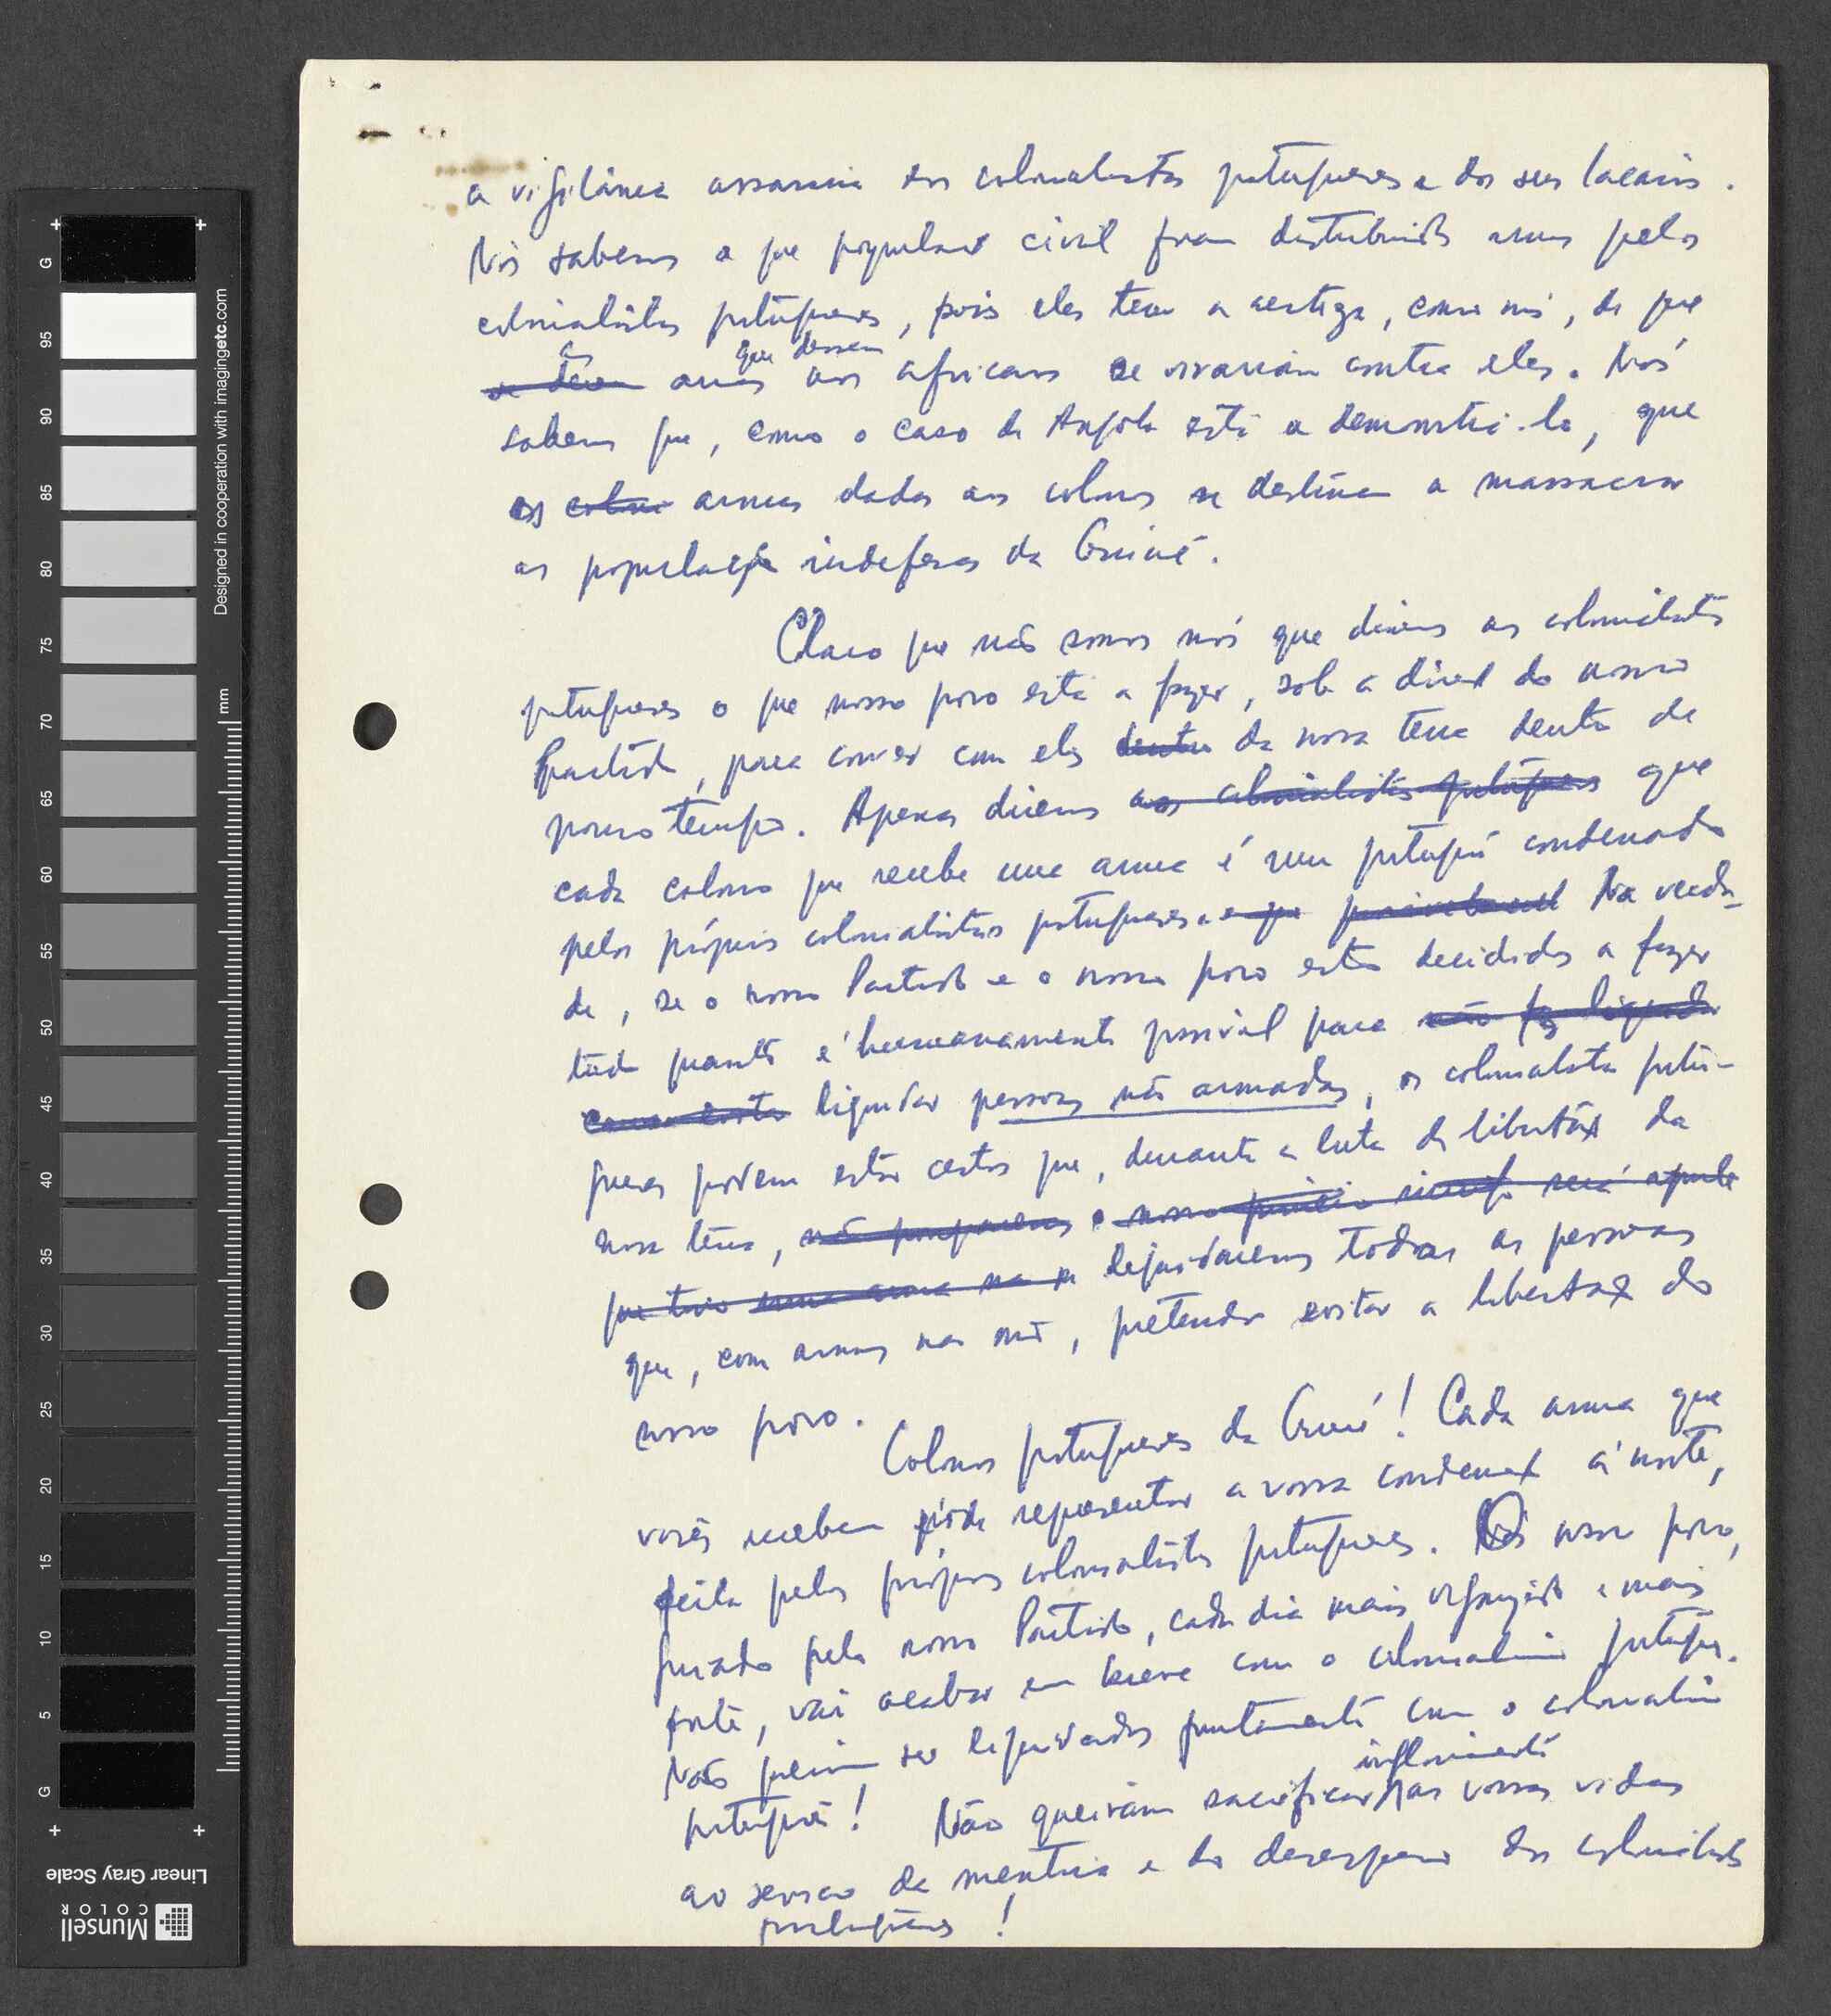 a vigilância assassina dos colonialistas portugueses e dos seus lacaios.
Nós sabemos a que população civil foram distribuidas armas pelos
colonialistas portugueses, pois eles teem a certeza, como nós, de que
as
se dérem armas que dessem aos africanos se virariam contra eles. Nós
sabemos que, como o caso de Angola está a demonstrá-lo, que
as colon armas dadas aos colonos se destinam a massacrar
as populações indefesas da Guiné.
Claro que não somos nós que diremos aos colonialistas
portugueses o que nosso povo está a fazer, sob a direcção do nosso
Partido, para correr com eles dentro da nossa terra dentro de
pouco tempo. Apenas diremos aos colonialistas portugueses que
cada colono que recebe uma arma é um português condenado
pelos próprios colonialistas portugueses e que Na verda-
de, se o nosso Partido e o nosso povo estão decididos a fazer
tudo quanto é humanamente possível para não
liquidar pessoas não armadas, os colonialistas portu-
gueses podem estar certos que, durante a luta de libertação da
nossa terra, o nosso primeiro será aquele
que tiver uma arma na m liquidaremos todas as pessoas
que, com armas na mão, pretendam evitar a libertação do
nosso povo.
Colonos portugueses da Guiné! Cada arma que
vocês recebem póde representar a vossa condenação á morte,
feita pelos próprios colonialistas portugueses. O nosso povo,
guiado pelo nosso Partido, cada dia mais organizado e mais
forte, vai acabar em breve com o colonialismo português.
Não queiram ser liquidados juntamente com o colonialismo
português! Não queiram sacrificar inglóriamente as vossas vidas
ao serviço da mentira e do desespero dos colonialistas
portugueses!